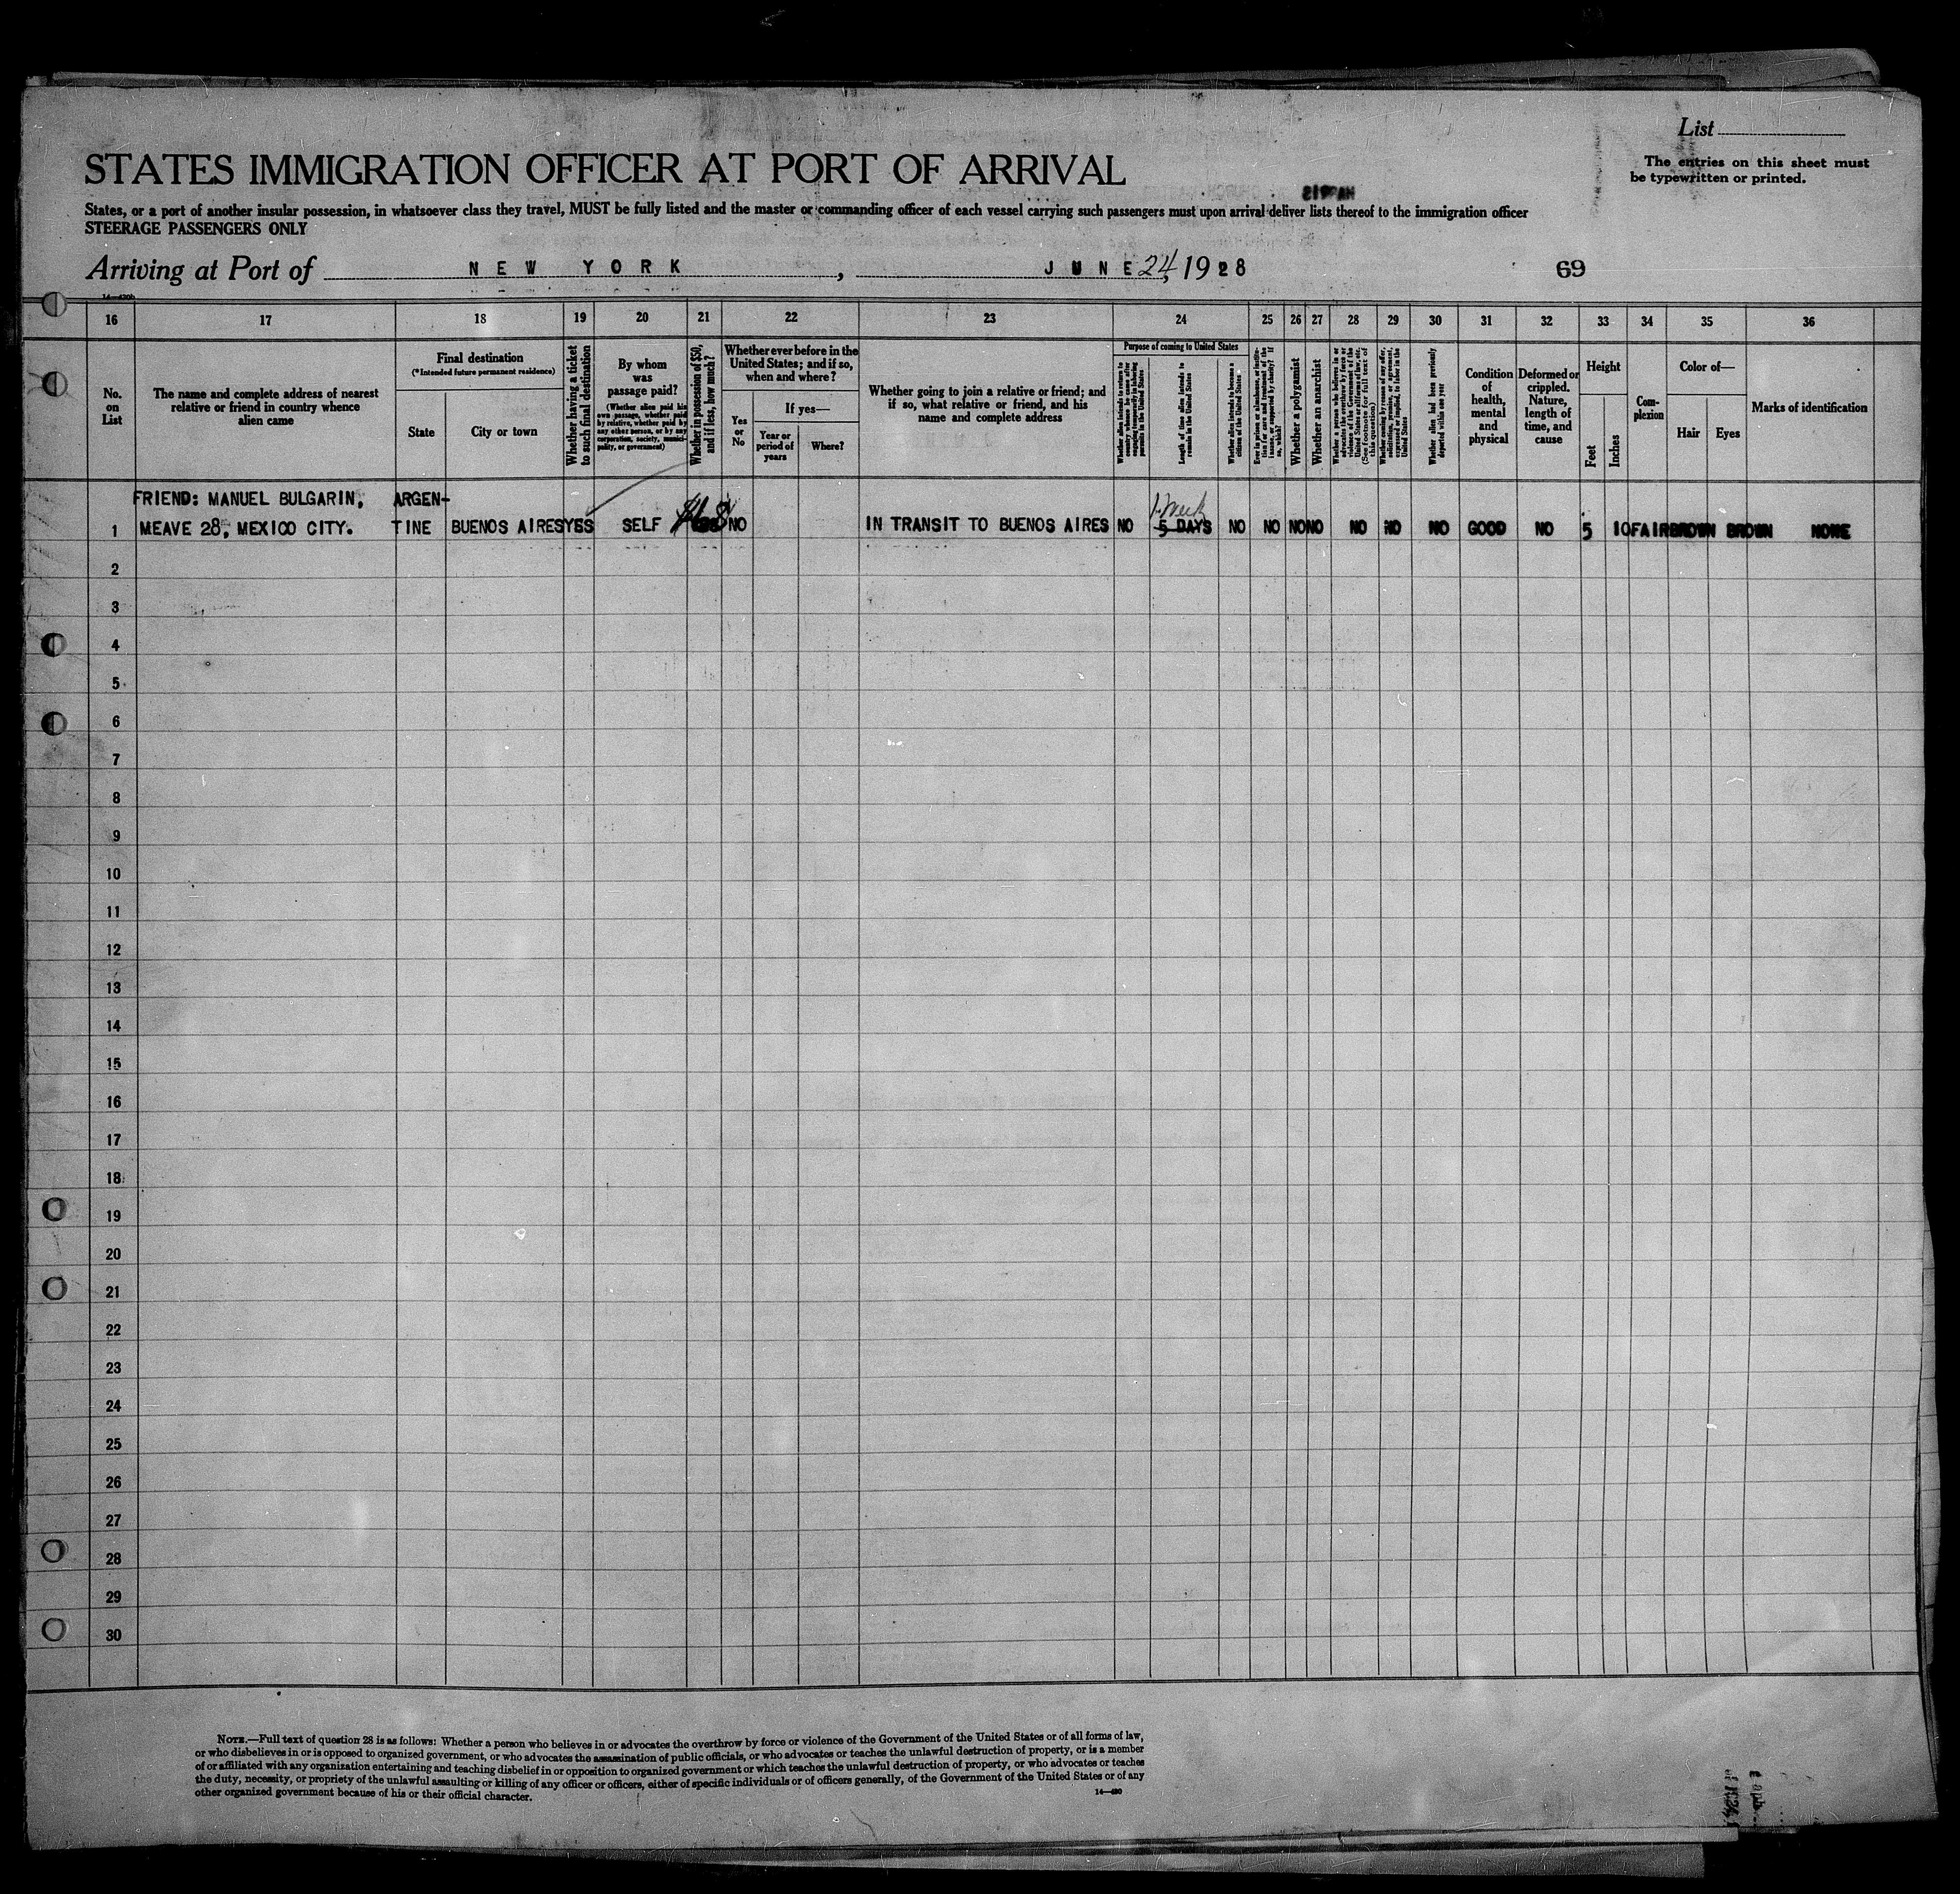 List
The entries on this sheet must
be typewritten or printed.
STATES IMMIGRATION OFFICER AT PORT OF ARRIVAL
States, or a port of another insular possession, in whatsoever class they travel, MUST be fully listed and the master or commanding officer of each vessel carrying such passengers must upon arrival deliver lists thereof to the immigration officer
STEERAGE PASSENGERS ONLY
Arriving at Port of NEW YORK, JUNE 24, 1928 69
16 17 18 19 20 21 22 23 24 25 26 27 28 29 30 31 32 33 34 35 36
No.
on
List
The name and complete address of nearest
relative or friend in country whence
alien came
Final destination
(*Intended future permanent residence)
State
City or town
Whether having a ticket
to such final destination
By whom
was
passage paid?
(Whether alien paid his
own passage, whether paid
by relative, whether paid by
any other person, or by any
corporation, society, munici-
pality, or government)
Whether in possession of $50,
and if less, how much?
Whether ever before in the
United States; and if so,
when and where?
Yes
or
No
If yes—
Year or
period of
years
Where?
Whether going to join a relative or friend; and
if so, what relative or friend, and his
name and complete address
Purpose of coming to United States
Whether alien intends to return to
country whence he came after
engaging temporarily in laboring
pursuits in the United States
Length of time alien intends to
remain in the United States
Whether alien intends to become a
citizen of the United States
Ever in prison or almshouse, or institu-
tion for care and treatment of the
insane, or supported by charity? If
so, which?
Whether a polygamist
Whether an anarchist
Whether a person who believes in or
advocates the overthrow by force or
violence of the Government of the
United States or all forms of law, etc.
(See footnote for full text of
this question)
Whether coming by reason of any offer,
solicitation, promise, or agreement,
expressed or implied, to labor in the
United States
Whether alien had been previously
deported within one year
Condition
of
health,
mental
and
physical
Deformed or
crippled.
Nature,
length of
time, and
cause
Height
Feet
Inches
Com-
plexion
Color of—
Hair
Eyes
Marks of identification
FRIEND: MANUEL BULGARIN, ARGEN- 1 Week
1 MEAVE 28, MEXICO CITY. TINE BUENOS AIRES YES SELF NO IN TRANSIT TO BUENOS AIRES NO 5 DAYS NO NO NO NO NO NO NO GOOD NO 5 10 FAIR BROWN BROWN NONE
2
3
4
5
6
7
8
9
10
11
12
13
14
15
16
17
18
19
20
21
22
23
24
25
26
27
28
29
30
NOTE.—Full text of question 28 is as follows: Whether a person who believes in or advocates the overthrow by force or violence of the Government of the United States or of all forms of law,
or who disbelieves in or is opposed to organized government, or who advocates the assassination of public officials, or who advocates or teaches the unlawful destruction of property, or is a member
of or affiliated with any organization entertaining and teaching disbelief in or opposition to organized government or which teaches the unlawful destruction of property, or who advocates or teaches
the duty, necessity, or propriety of the unlawful assaulting or killing of any officer or officers, either of specific individuals or of officers generally, of the Government of the United States or of any
other organized government because of his or their official character.
14—430